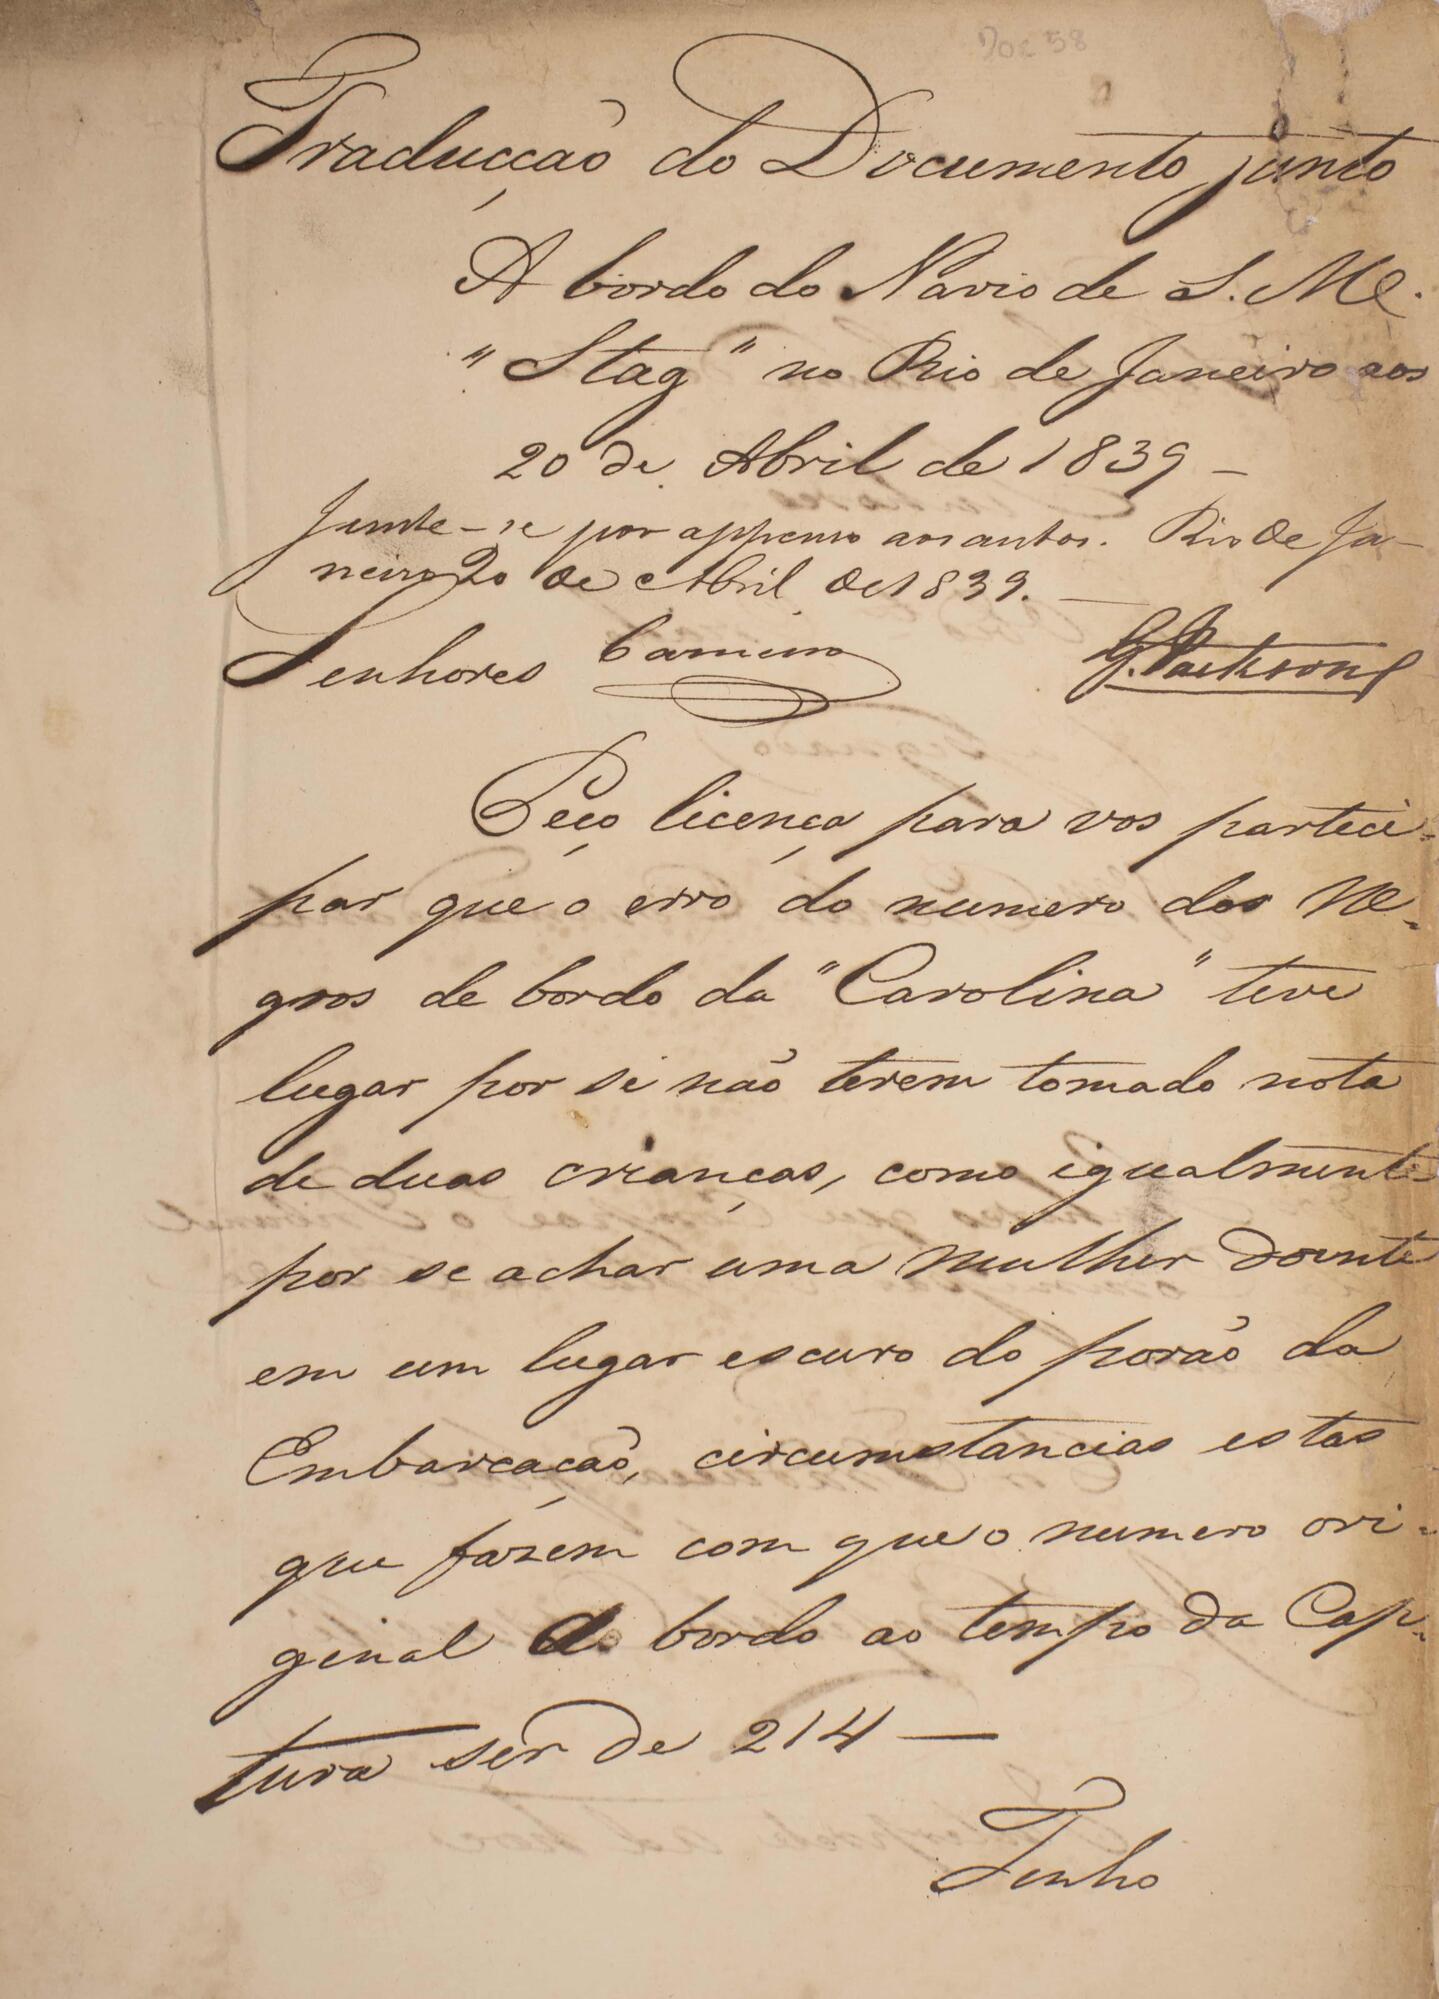 Doc 58
Traducção do Documento junto
A bordo do Navio de S. M.
"Stag" no Rio de Janeiro aos
20 de Abril de 1839 —
Junte-se por appenso aos autos. Rio de Ja-
neiro 20 de Abril de 1839. —
Senhores Carneiro G. Jackson
Peço licença para vos parteci-
par que o erro do numero dos Ne-
gros de bordo da "Carolina" teve
lugar por se não terem tomado nota
de duas crianças, como igualmente
por se achar uma mulher doente
em um lugar escuro do porão da
Embarcação, circumstancias estas
que fazem com que o numero ori-
ginal a bordo ao tempo da Cap-
tura ser de 214 —
Tenho